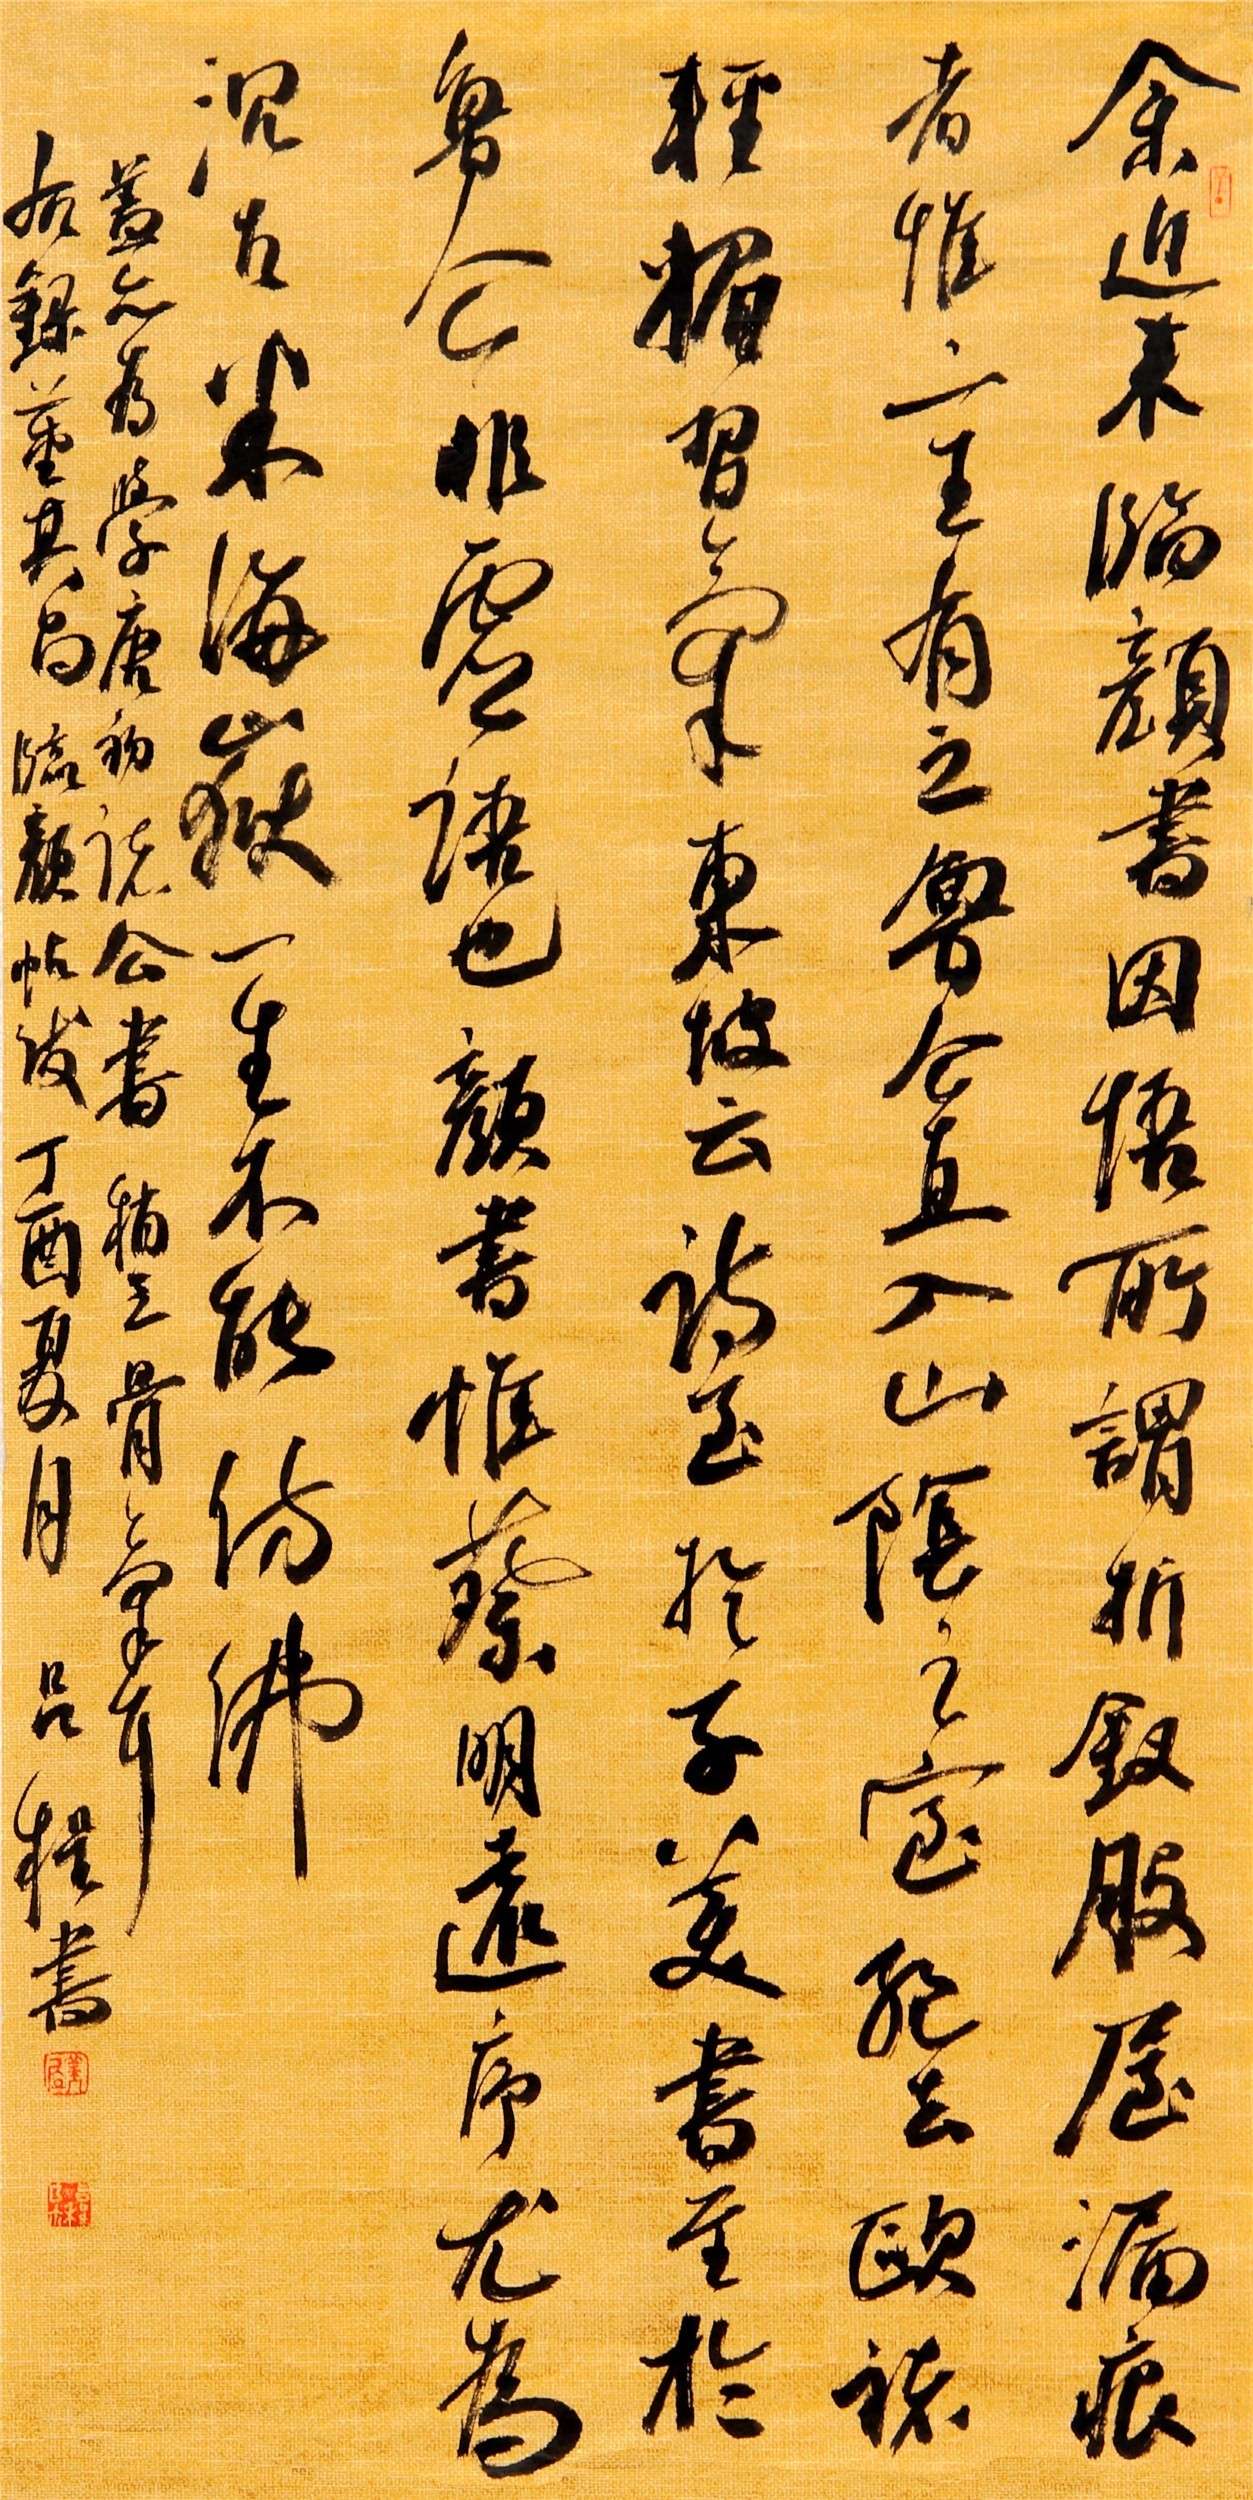 余近来臨顔書因悟所謂折釵股屋漏痕
者惟二王有之魯公直入山陰之室絕去歐褚
輕媚習氣東坡云詩至於子美書至於
魯公非虛語也顔書惟蔡明遠序尤為
沉古米海嶽一生不能仿佛
蓋亦為學唐初諸公書稍乏骨氣耳
右録董其昌臨顔帖跋丁酉夏月吕程書